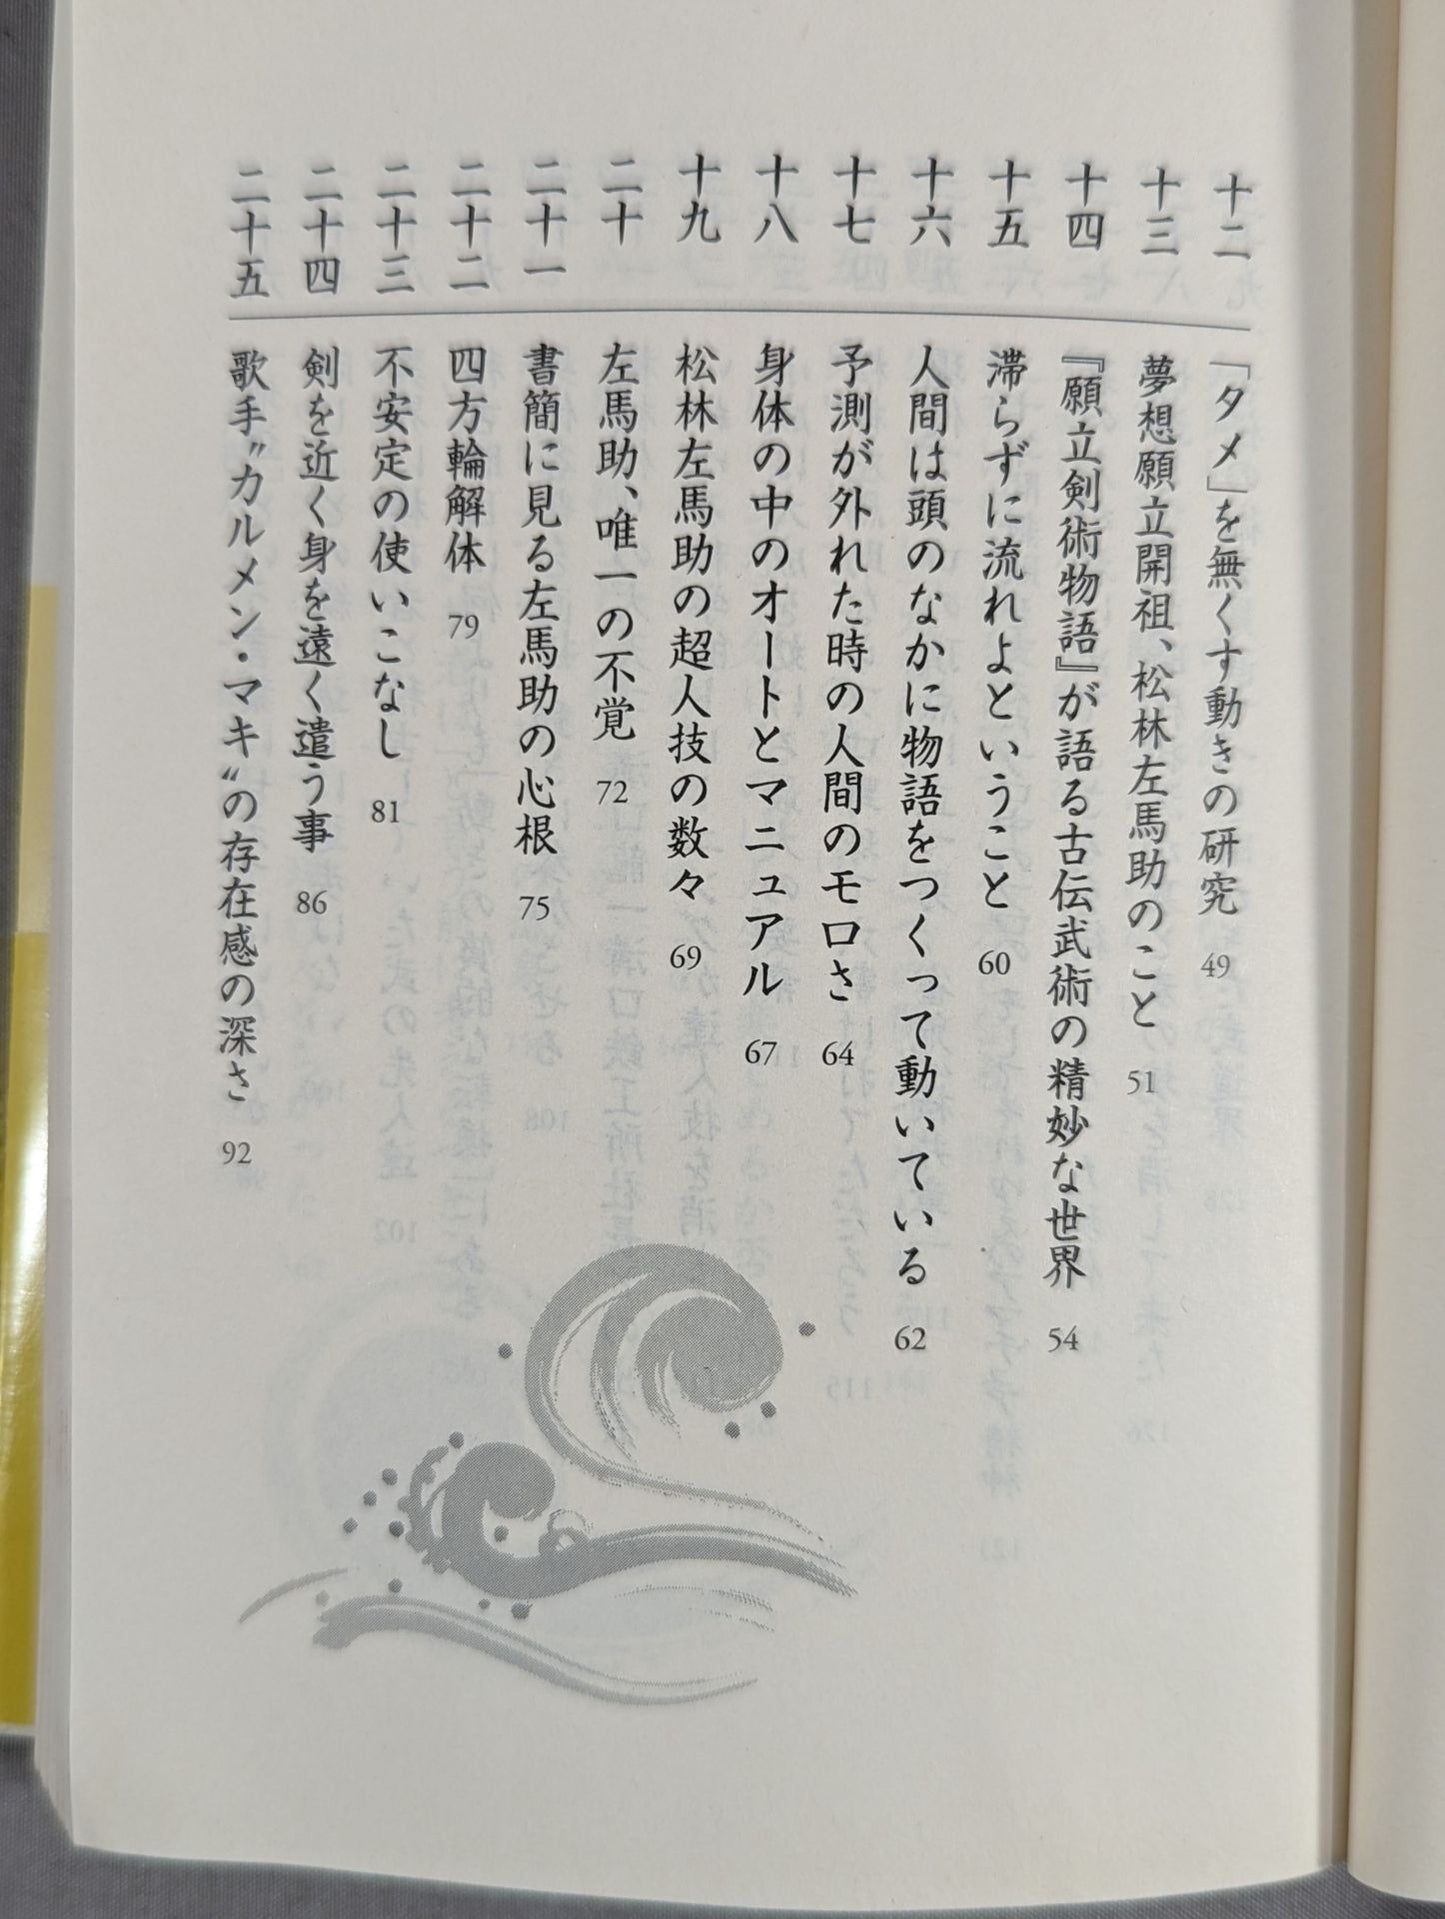 十二 「タメ」を無くす動きの研究 49
十三 夢想願立開祖、松林左馬助のこと 51
十四 『願立剣術物語』が語る古伝武術の精妙な世界 54
十五 滞らずに流れよということ 60
十六 人間は頭のなかに物語をつくって動いている 62
十七 予測が外れた時の人間のモロさ 64
十八 身体の中のオートとマニュアル 67
十九 松林左馬助の超人技の数々 69
二十 左馬助、唯一の不覚 72
二十一 書簡に見る左馬助の心根 75
二十二 四方輪解体 79
二十三 不安定の使いこなし 81
二十四 剣を近く身を遠く遣う事 86
二十五 歌手〝カルメン・マキ〟の存在感の深さ 92